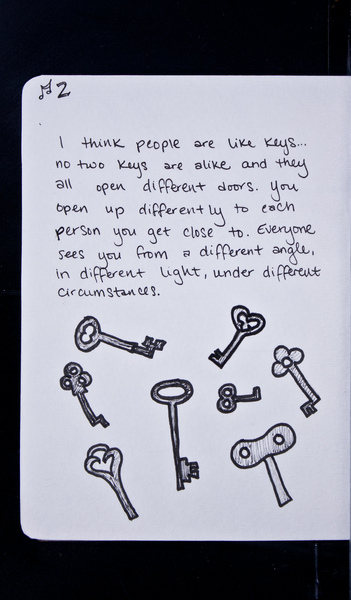 #2
I think people are like keys...
no two keys are alike and they
all open different doors. you
open up differently to each
person you get close to. Everyone
sees you from a different angle,
in different light, under different
circumstances.